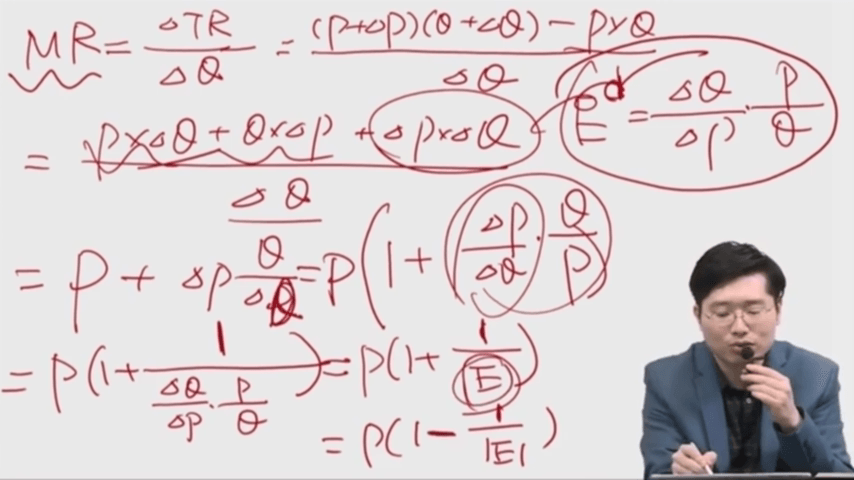 MR = ΔTR/ΔQ = ((P+ΔP)(Q+ΔQ) − P×Q)/ΔQ
E^d = ΔQ/ΔP · P/Q
= (P×ΔQ + Q×ΔP + ΔP×ΔQ)/ΔQ
= P + ΔP Q/ΔQ = P(1 + ΔP/ΔQ · Q/P)
= P(1 + 1/(ΔQ/ΔP · P/Q)) = P(1 + 1/E)
= P(1 − 1/|E|)